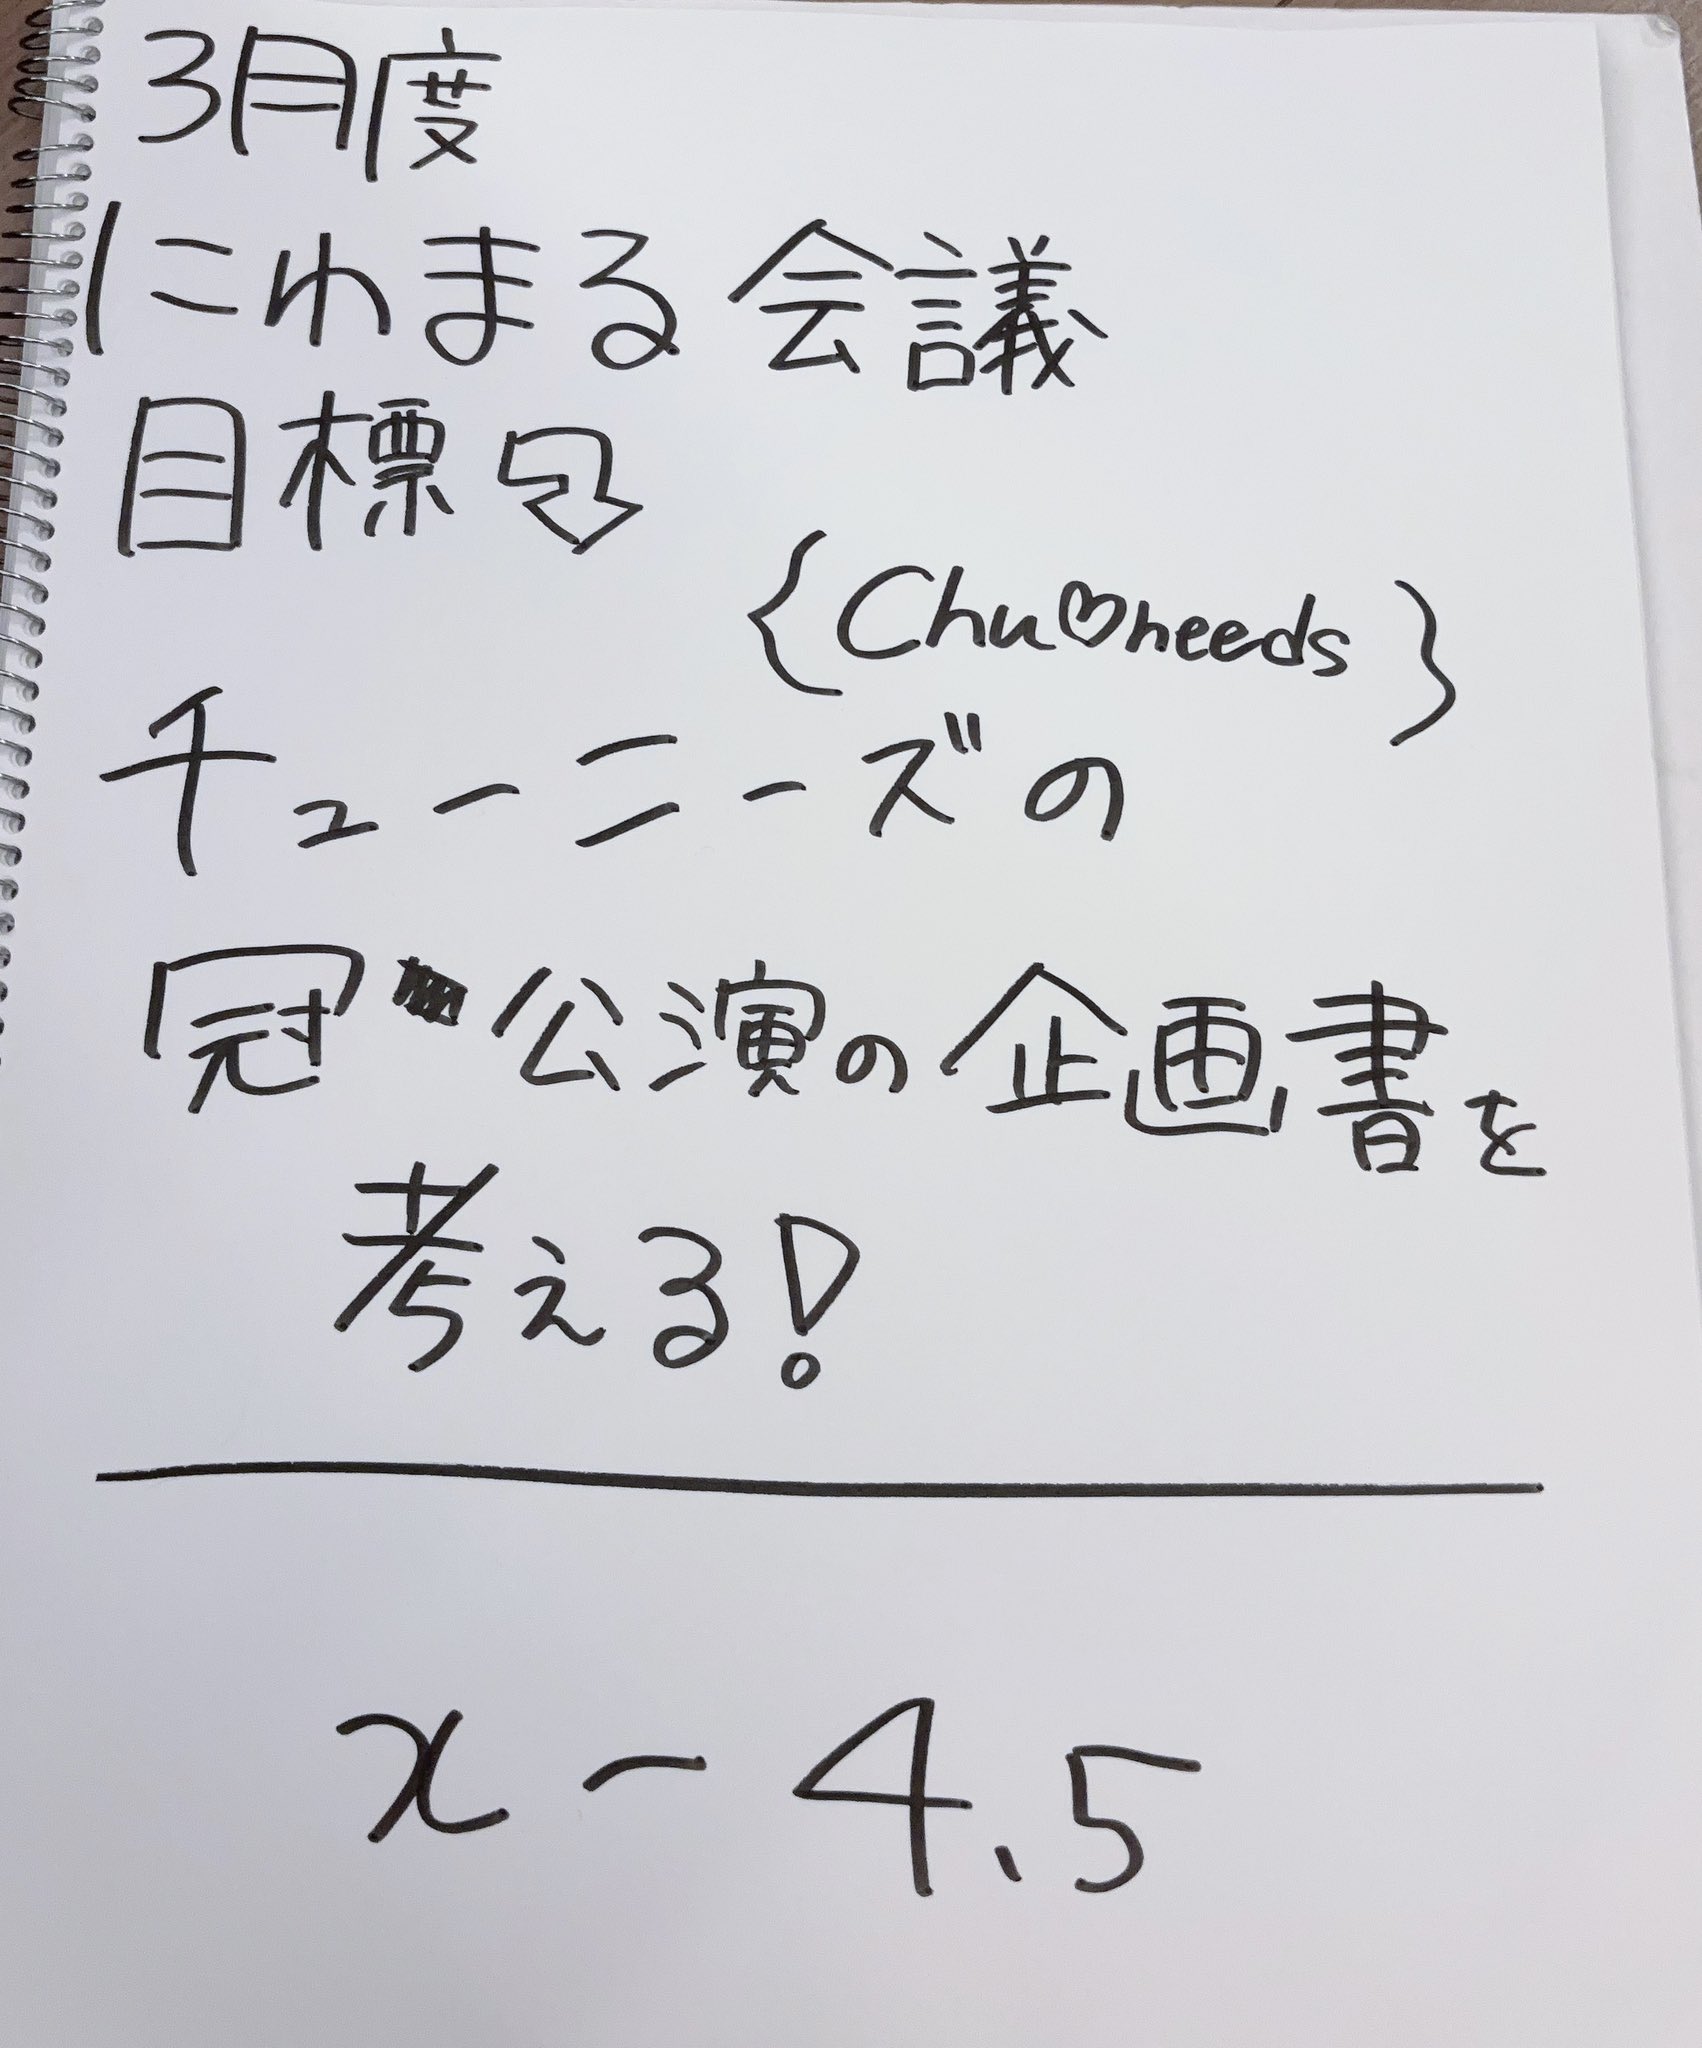 3月度
にわまる会議
目標
{Chu♡needs}
チューニーズの
冠公演の企画書を
考える!
x-4.5